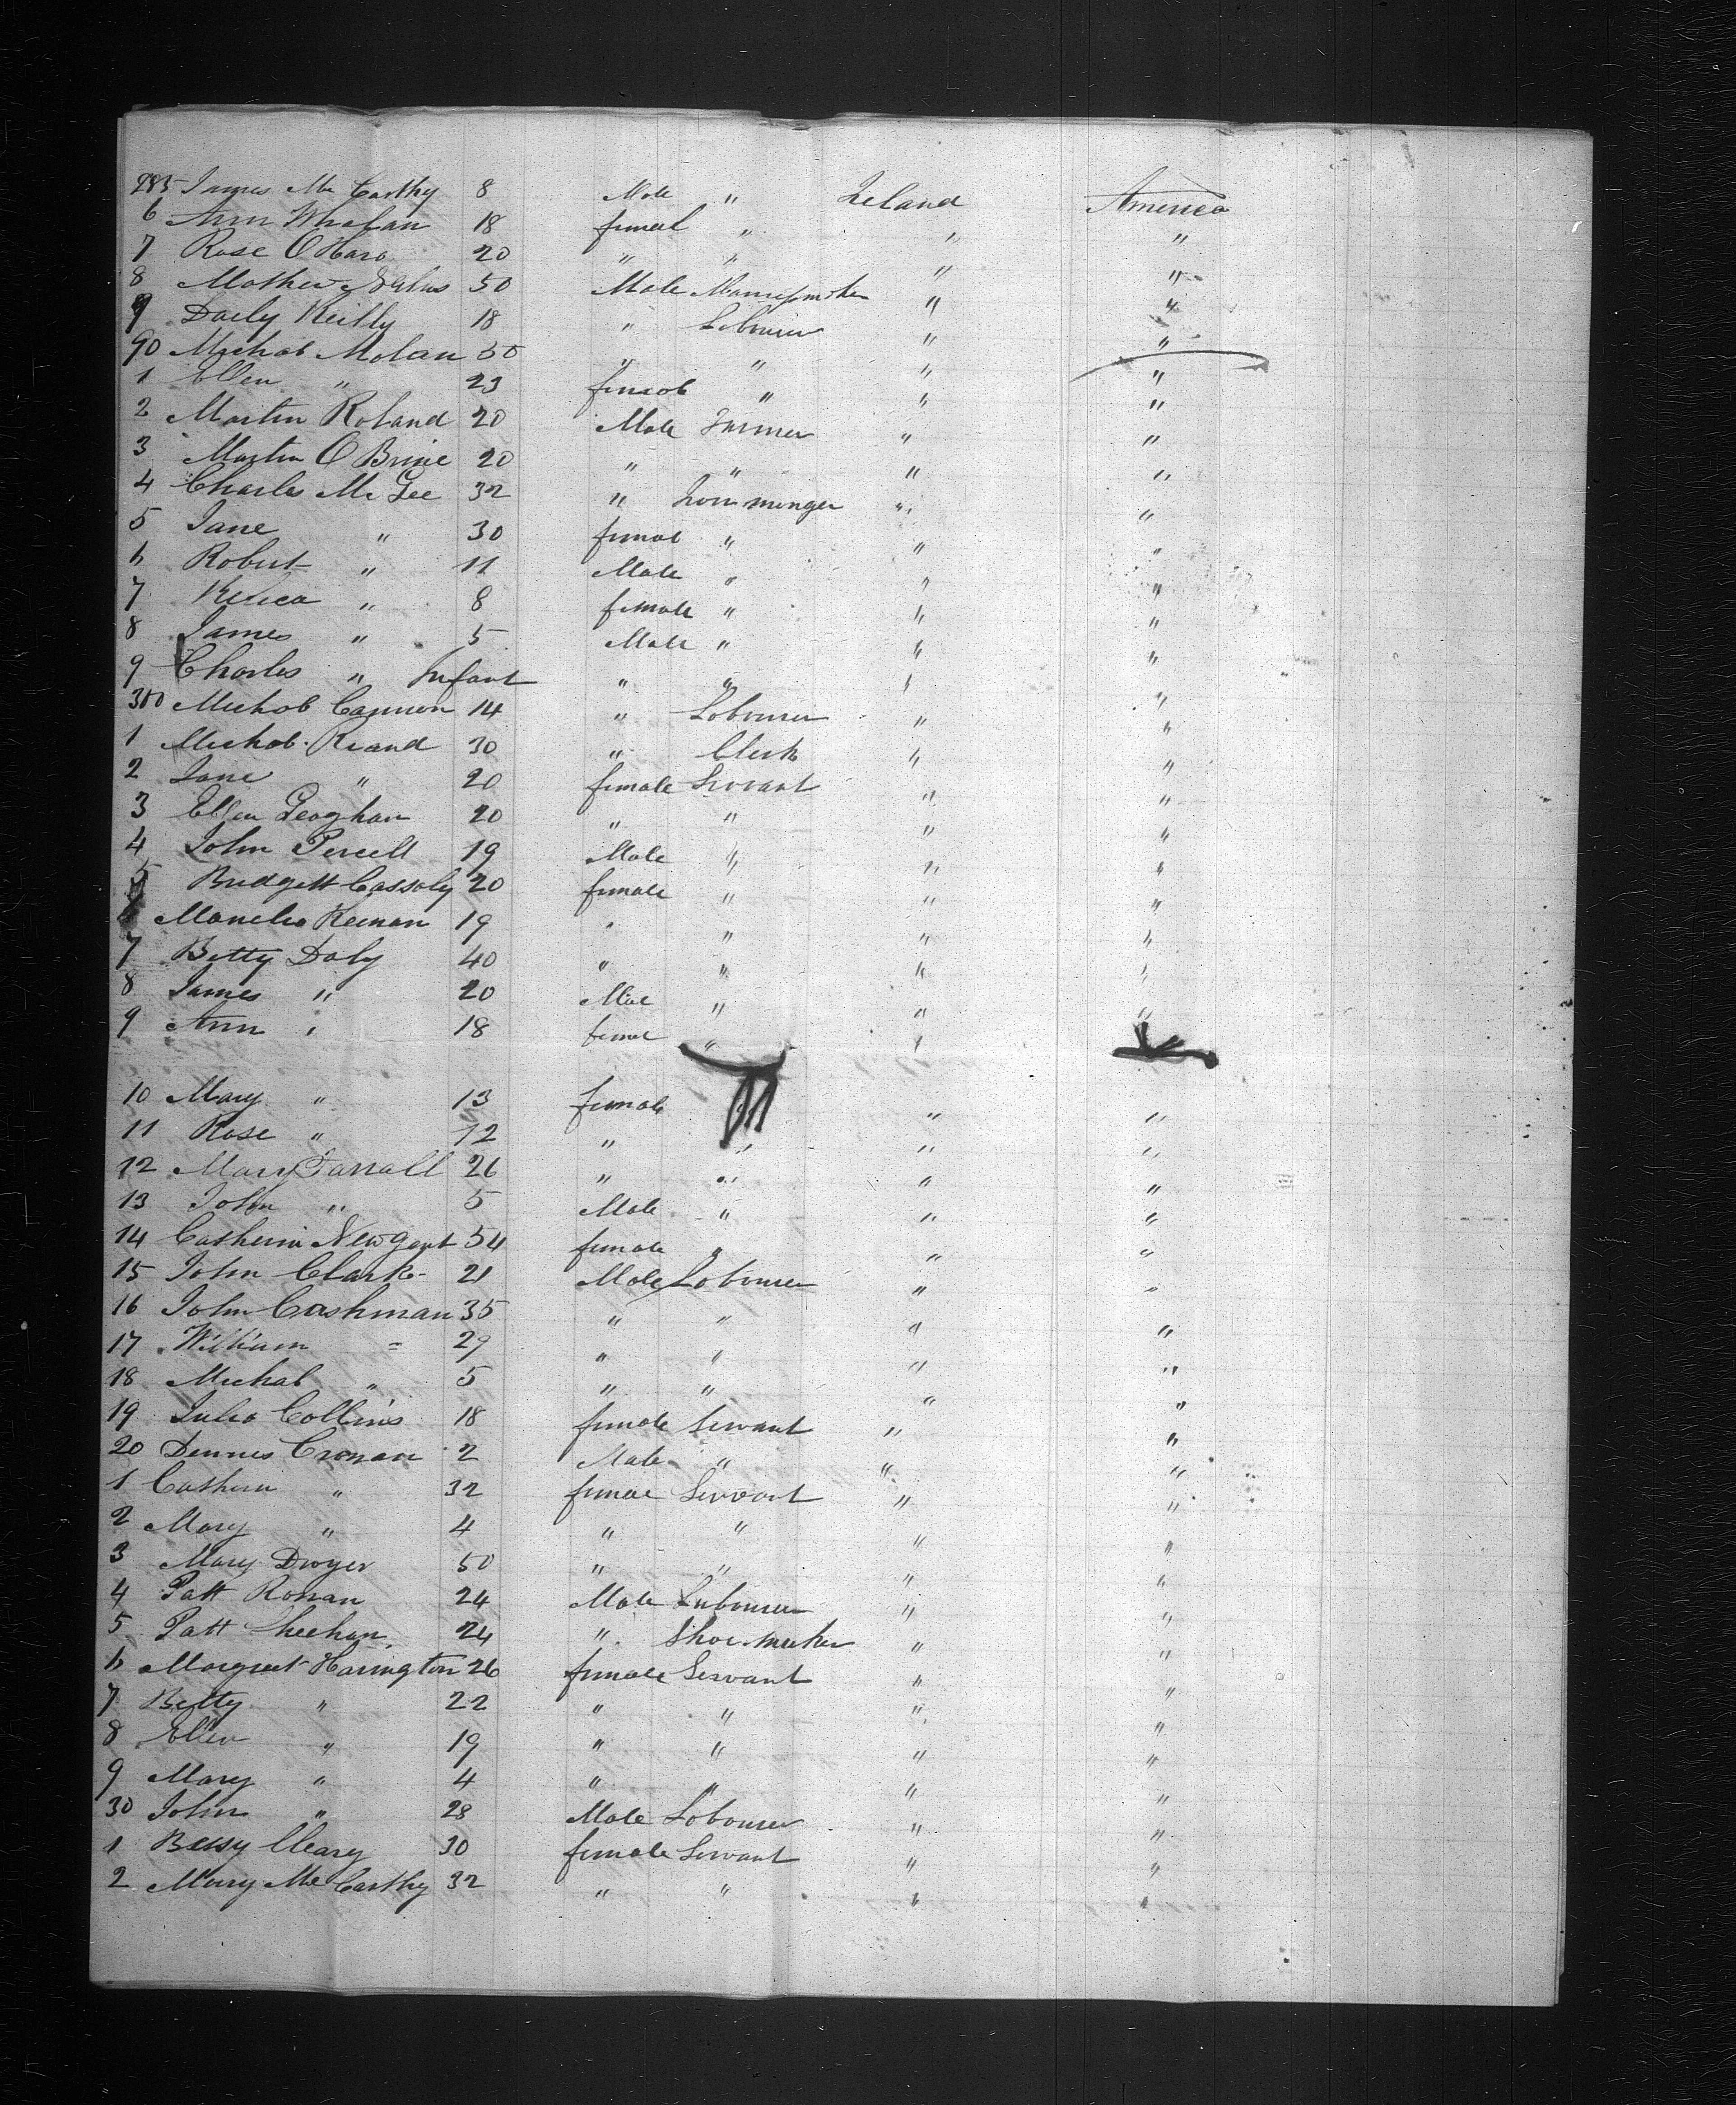 285 James Mc Carthy 8 Male " Ireland America
6 Ann Whelan 18 femal " " "
7 Rose O Hara 20 " " " "
8 Mathew 50 Male " "
9 Daily Reilly 18 " Labourer " "
90 Michal Molan 30 " " " "
1 Ellen " 23 femal " " "
2 Martin Roland 20 Male Farmer " "
3 Martin O Brine 20 " " " "
4 Charles Mc Gee 32 " Iron monger " "
5 Jane " 30 femal " " "
6 Robert " 11 Male " " "
7 " 8 female " " "
8 James " 5 Male " " "
9 Charles " Infant " " " "
300 Michal Cannon 14 " Labourer " "
1 Michal 30 " Clerk " "
2 Jane " 20 female Servant " "
3 Ellen Geoghan 20 " " " "
4 John Percell 19 Male " " "
5 Bridgett Cassaly 20 female " " "
6 Keenan 19 " " " "
7 Betty Daly 40 " " " "
8 James " 20 Male " " "
9 Ann " 18 femal " " "
10 Mary " 13 female " "
11 Rose " 12 " " " "
12 Mary Farrall 26 " " " "
13 John " 5 Male " " "
14 Catherin Newgent 54 female " " "
15 John Clark 21 Male Labourer " "
16 John Cashman 35 " " " "
17 William = 29 " " " "
18 Michal " 5 " " " "
19 Julia Collins 18 female Servant " "
20 Dennes Cronan 2 Male " " "
1 Cathern " 32 female Servant " "
2 Mary " 4 " " " "
3 Mary Dwyer 50 " " " "
4 Patt Ronan 24 Male Labourer " "
5 Patt Sheehan 24 " Shoe maker " "
6 Margreet Harington 26 female Servant " "
7 Betty " 22 " " " "
8 Ellen " 19 " " " "
9 Mary " 4 " " " "
30 John " 28 Male Labourer " "
1 Bessy Cleary 30 female Servant " "
2 Mary Mc Carthy 32 " " " "